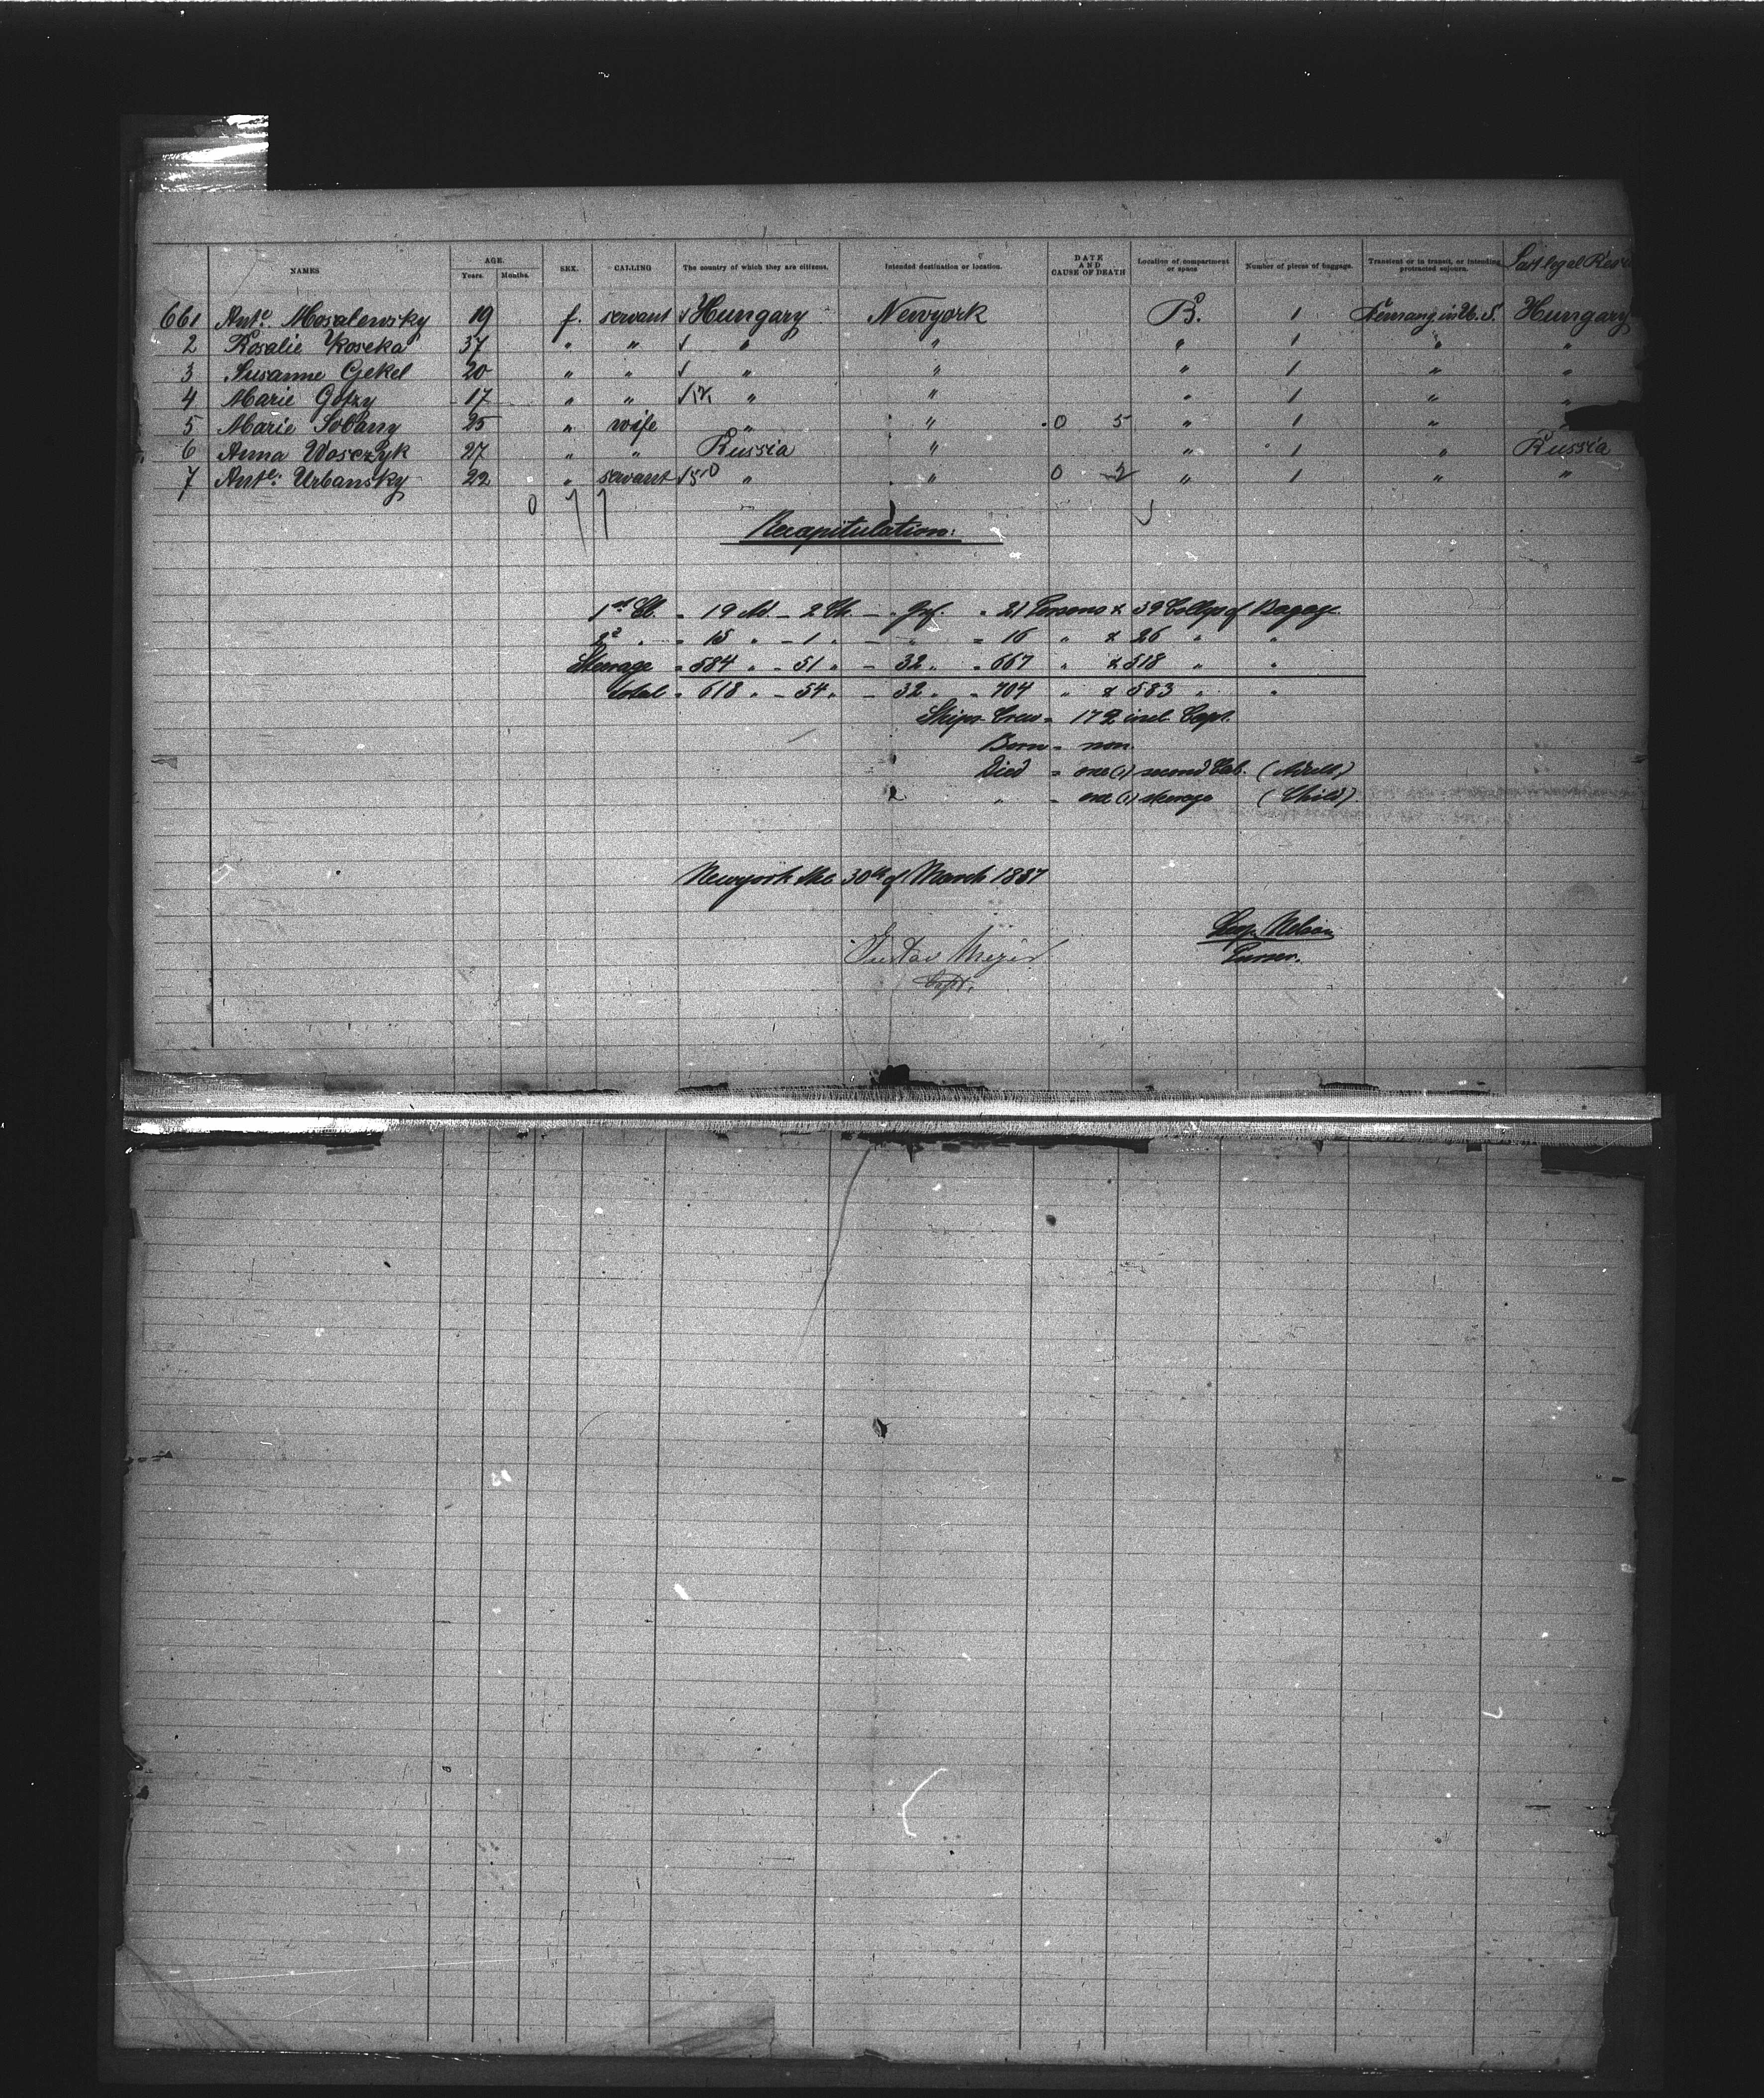 NAMES AGE. Years. Months. SEX. CALLING The country of which they are citizens. Intended destination or location. DATE AND CAUSE OF DEATH Location of compartment or space Number of pieces of baggage. Transient or in transit, or intending protracted sojourn. Last legal
661 Ant.e Mosalewsky 19 f. servant √ Hungary Newyork B. 1 in U.S. Hungary
2 Rosalie Koseka 37 " " √ " " " 1 " "
3 Susanne Gekel 20 " " √ " " " 1 " "
4 Marie Gotzy 17 " " √ " " " 1 " "
5 Marie Sobany 25 " wife " " 0 5 " 1 " "
6 Anna Wosczyk 27 " " Russia " " 1 " Russia
7 Ant.e Urbansky 22 " servant √ 510 " " 0 2 " 1 " "
0 7 7
Recapitulation:
1st Cl. = 19 Ad. - 2 Ch. - " Inf. = 21 Persons & 39 Collys of Bagage
2d " = 15 " - 1 " - " = 16 " & 26 " "
Steerage = 584 " - 51 " - 32 " = 667 " & 518 " "
total = 618 " - 54 " - 32 " = 704 " & 583 " "
Ships Crew = 172 incl. Capt.
Born = non.
Died = one (1) second Cab. (Adult)
2 " = one (1) steerage (Child)
Newyork the 30th of March 1887
Gustav Meyer
Capt.
Purser.